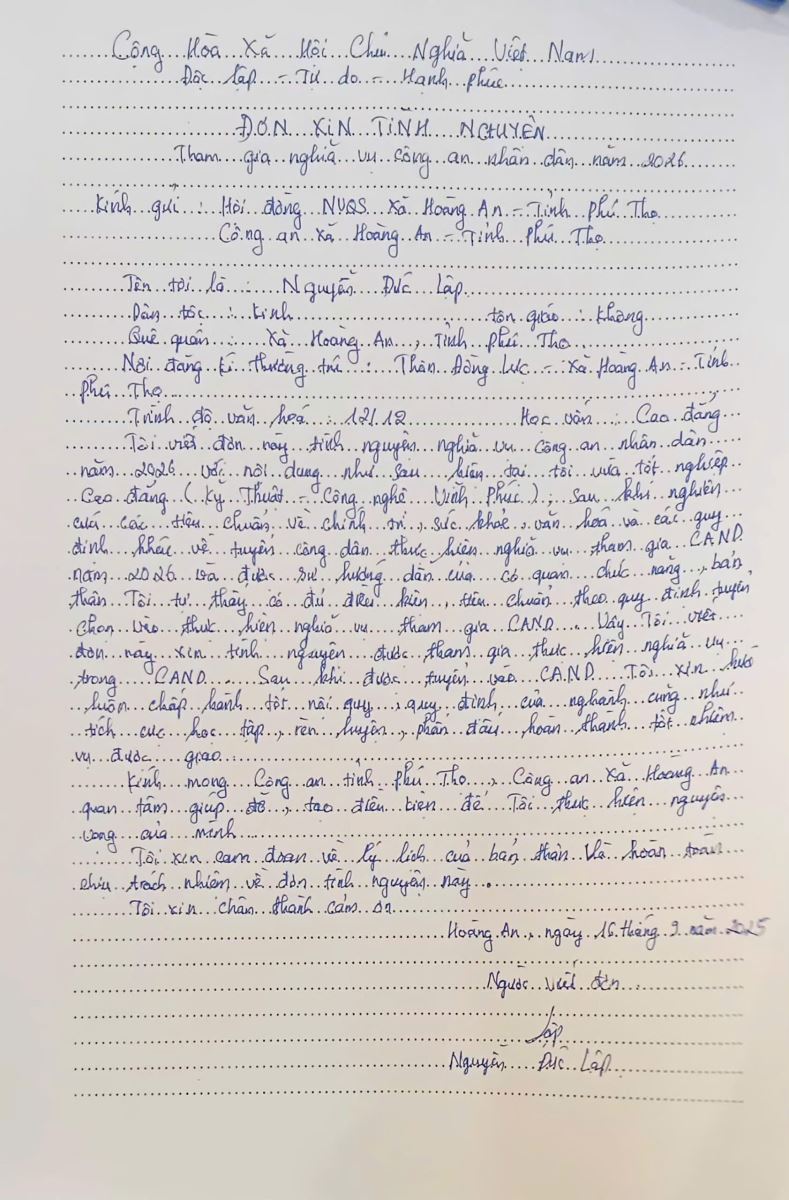 Cộng Hòa Xã Hội Chủ Nghĩa Việt Nam
Độc lập - Tự do - Hạnh phúc
ĐƠN XIN TÌNH NGUYỆN
Tham gia nghĩa vụ công an nhân dân năm 2026
Kính gửi : Hội đồng NVQS Xã Hoàng An - Tỉnh Phú Thọ
Công an xã Hoàng An - Tỉnh Phú Thọ
Tên tôi là : Nguyễn Đức Lập
Dân tộc : Kinh tôn giáo : không
Quê quán : Xã Hoàng An, Tỉnh Phú Thọ
Nơi đăng kí thường trú : Thôn Đồng Lực - Xã Hoàng An - Tỉnh
Phú Thọ
Trình độ văn hoá : 12/12 Học vấn : Cao đẳng
Tôi viết đơn này tình nguyện nghĩa vụ công an nhân dân
năm 2026 với nội dung như sau hiện tại tôi vừa tốt nghiệp
Cao đẳng (Kỹ Thuật - Công nghệ Vĩnh Phúc) ; sau khi nghiên
cứu các tiêu chuẩn về chính trị, sức khỏe, văn hoá và các quy
định khác về tuyển công dân thực hiện nghĩa vụ tham gia CAND
năm 2026 và được sự hướng dẫn của cơ quan chức năng, bản
thân Tôi tự thấy có đủ điều kiện, tiêu chuẩn theo quy định tuyển
chọn vào thực hiện nghĩa vụ tham gia CAND. Vậy Tôi viết
đơn này xin tình nguyện được tham gia thực hiện nghĩa vụ
trong CAND. Sau khi được tuyển vào CAND Tôi xin hứa
luôn chấp hành tốt nội quy, quy định của nghành cũng như
tích cực học tập, rèn luyện, phấn đấu hoàn thành tốt nhiệm
vụ được giao.
Kính mong Công an tỉnh Phú Thọ, Công an Xã Hoàng An
quan tâm giúp đỡ, tạo điều kiện để Tôi thực hiện nguyện
vọng của mình
Tôi xin cam đoan về lý lịch của bản thân Và hoàn toàn
chịu trách nhiệm về đơn tình nguyện này.
Tôi xin chân thành cảm ơn
Hoàng An, ngày 16 tháng 9 năm 2025
Người viết đơn
Lập
Nguyễn Đức Lập